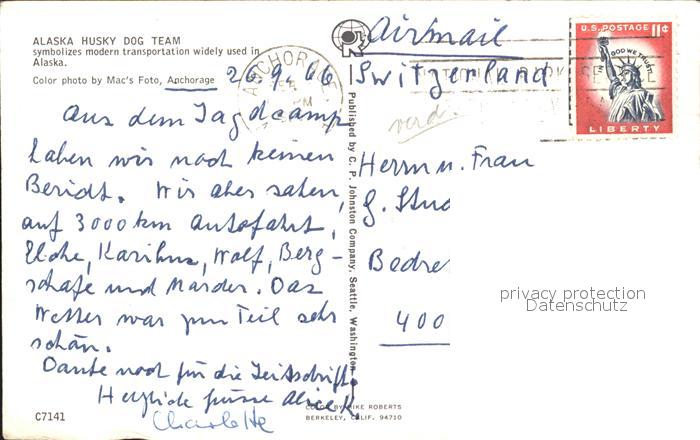 ALASKA HUSKY DOG TEAM
symbolizes modern transportation widely used in
Alaska.
Color photo by Mac's Foto, Anchorage
26.9.66
Aus dem Jagdcamp
haben wir noch keinen
Bericht. Wir aber sahen,
auf 3000 km Autofahrt,
Elche, Karibus, Wolf, Berg-
schafe und Marder. Das
Wetter war zum Teil sehr
schön.
Danke noch für die Zeitschrift.
Herzliche Grüsse Alice
Charlotte
C7141
Published by C. P. Johnston Company, Seattle, Washington
COLOR BY MIKE ROBERTS
BERKELEY, CALIF. 94710
ANCHORAGE
Airmail
Switzerland
Herrn u. Frau
400
U.S. POSTAGE 11¢
IN GOD WE TRUST
LIBERTY
privacy protection
Datenschutz